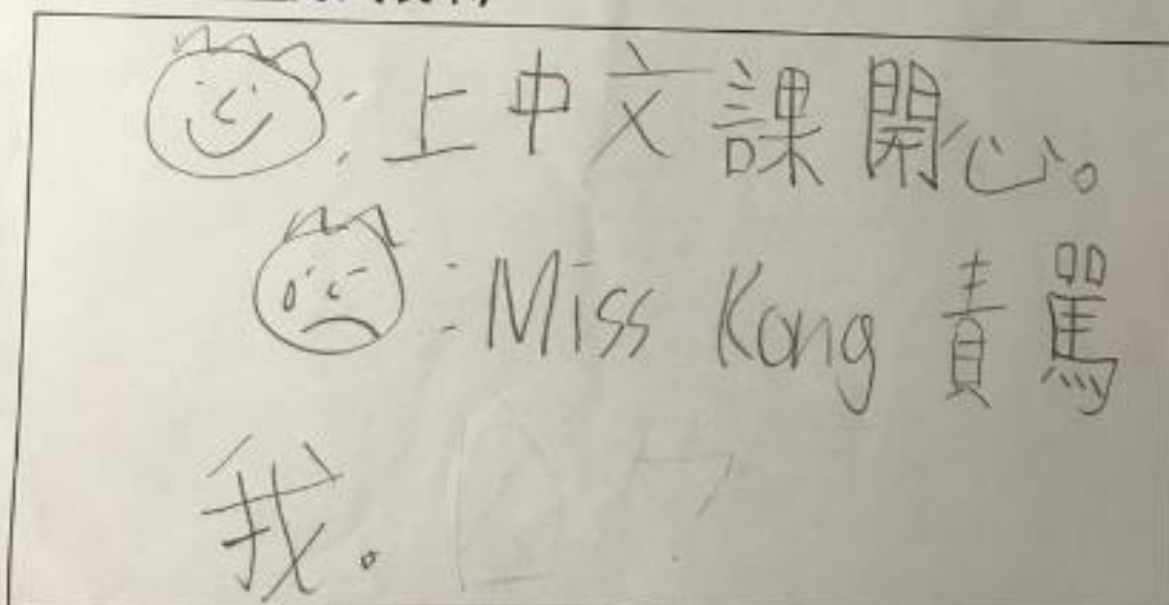 ：上中文課開心。
：Miss Kong 責罵
我。